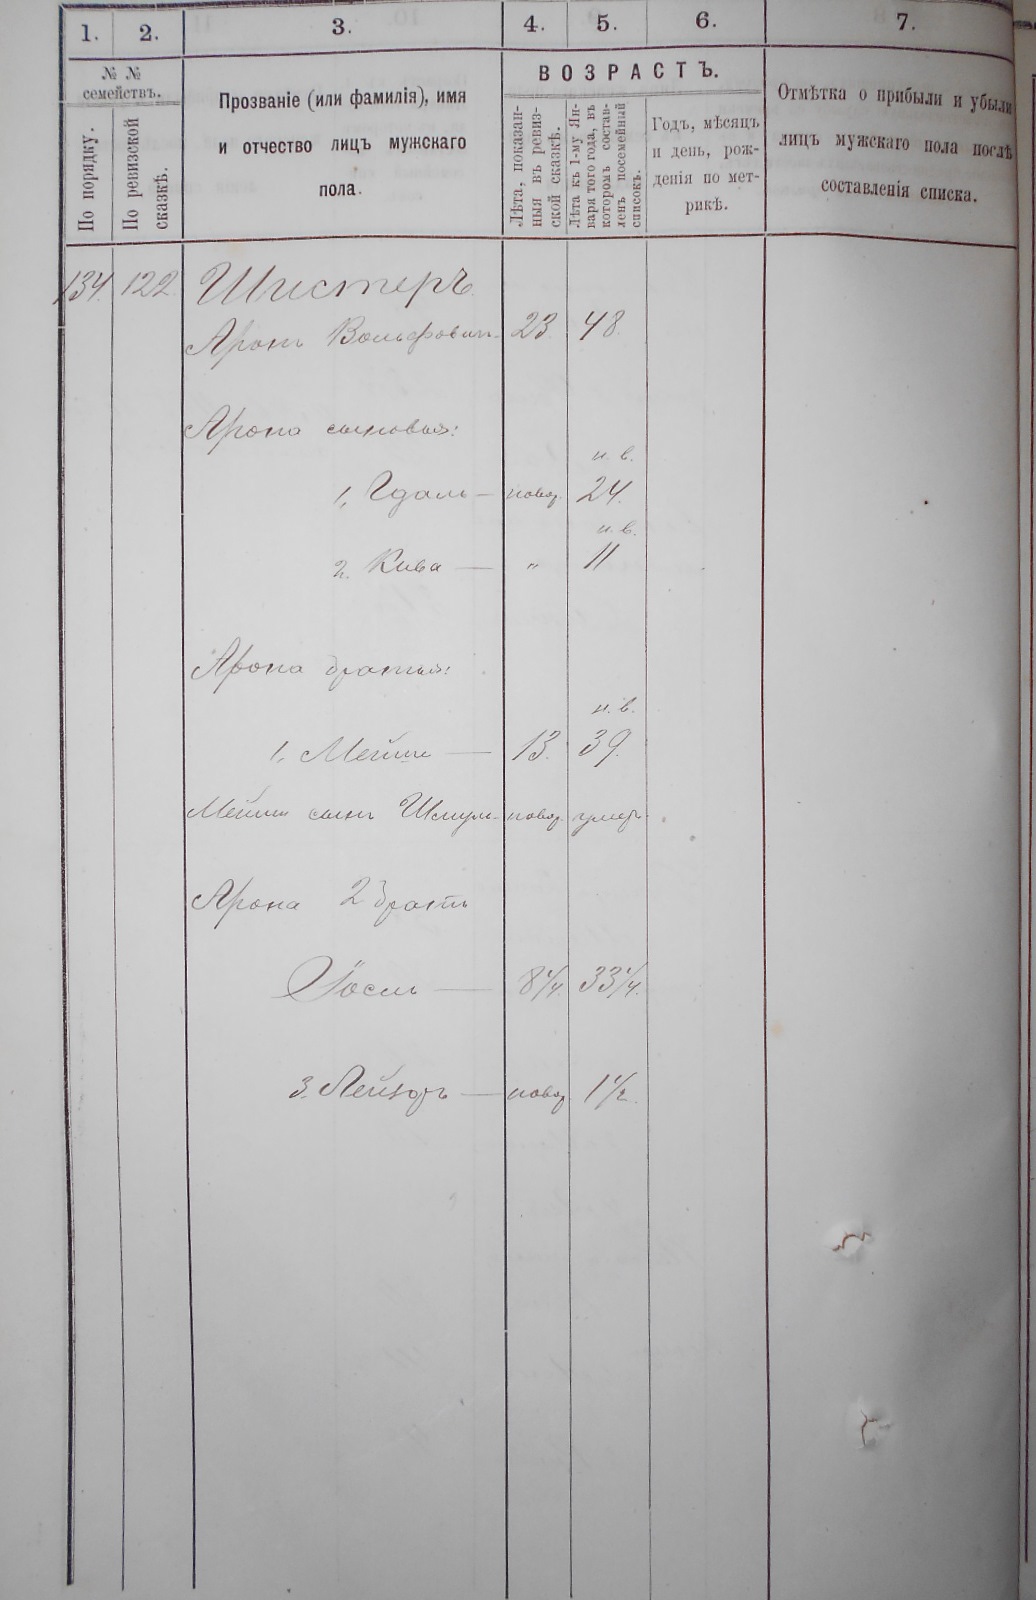 1. 2. 3. 4. 5. 6. 7.
№ № семействъ.
По порядку.
По ревизской сказкѣ.
Прозваніе (или фамилія), имя
и отчество лицъ мужскаго
пола.
ВОЗРАСТЪ.
Лѣта, показан-
ныя въ ревиз-
ской сказкѣ.
Лѣта къ 1-му Ян-
варя того года, въ
которомъ состав-
ленъ посемейный
списокъ.
Годъ, мѣсяцъ
и день, рож-
денія по мет-
рикѣ.
Отмѣтка о прибыли и убыли
лицъ мужскаго пола послѣ
составленія списка.
134. 122. Шистеръ
Аронъ Вольфович 23. 48.
Арона сыновья:
н. в.
1, Гдаль — новор. 24.
н. в.
2. Кива — „ 11
Арона братья:
н. в.
1, Мейши — 13. 39.
Мейши сынъ Шмуль новор. умер.
Арона 2 братъ
Іосель — 8 1/4. 33 1/4.
3. Лейзоръ — новор 1 1/2.